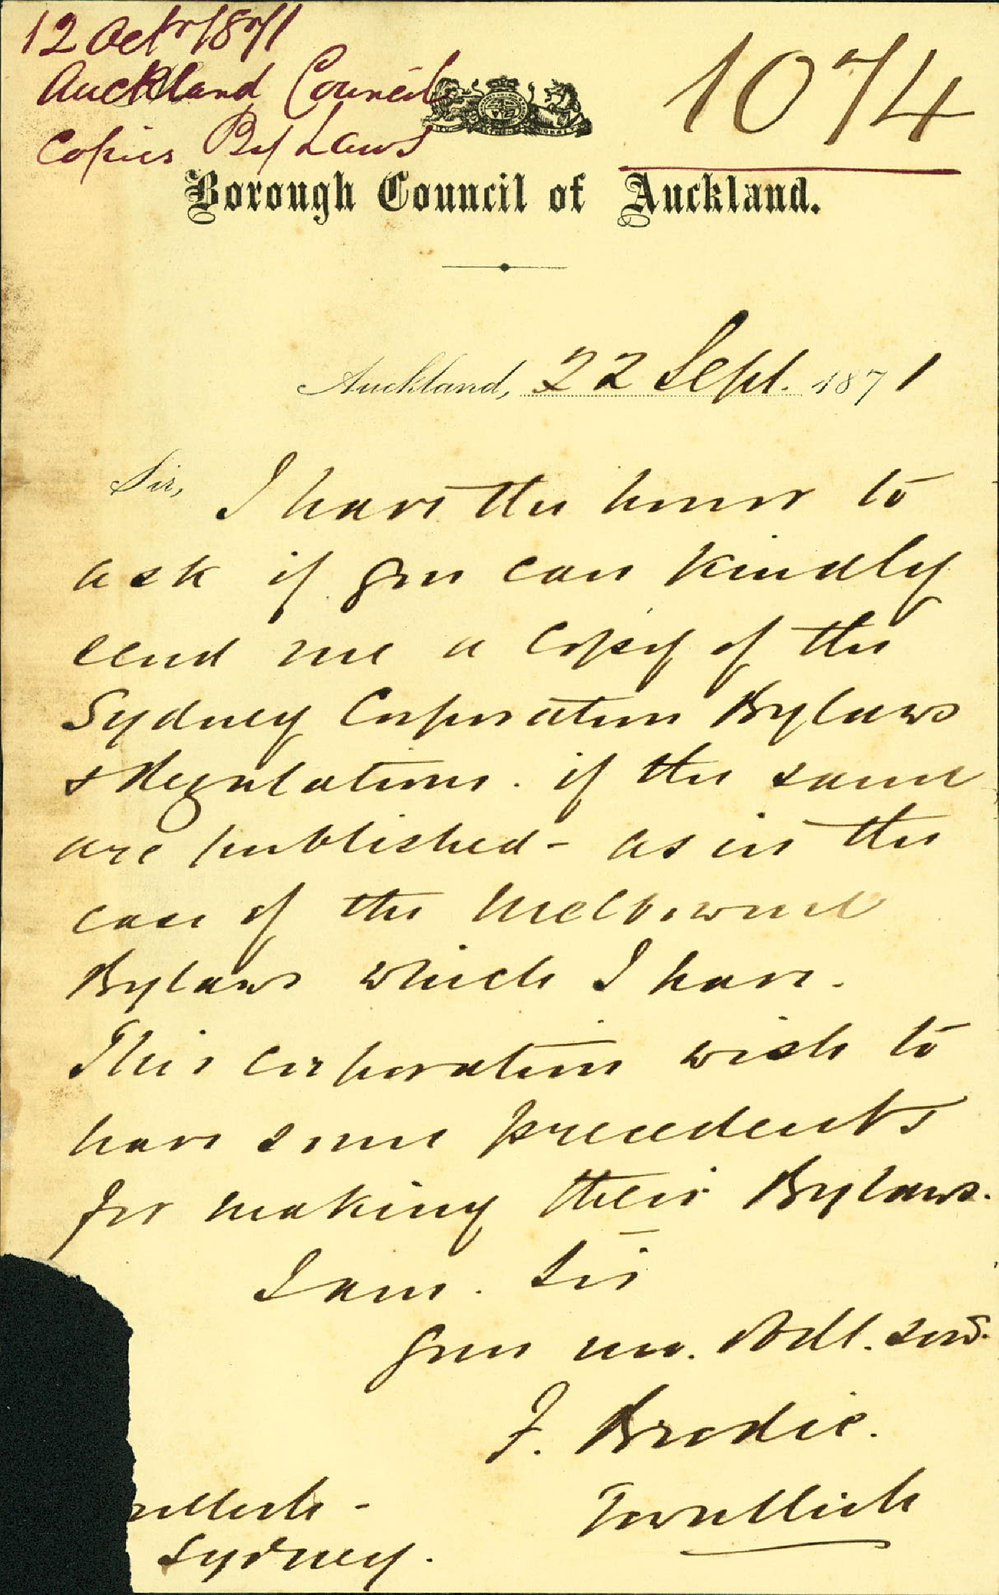 12 Octr 1871
Auckland Council
Copies By Laws
1074
Borough Council of Auckland.
Auckland, 22 Sept. 1871
Sir, I have the honor to
ask if you can kindly
send me a copy of the
Sydney Corporation Bylaws
& Regulations. if the same
are published - as in the
case of the Melbourne
Bylaws which I have.
This corporation wish to
have some precedents
for making their Bylaws.
I am. Sir
your mo. Obdt. servt.
F. Brodie.
Town Clerk
Sydney.